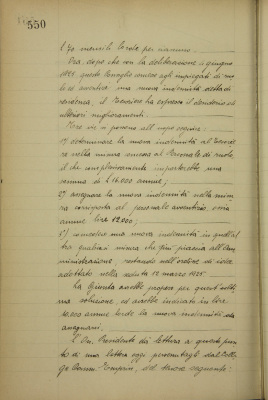 550
L. 70 mensili lorde per ciascuno.
Ora, dopo che con la deliberazione 2 giugno
questo Consiglio concesse agli impiegati di ruo
lo ed avventizi una nuova indennità detta di
residenza, il Tecnico ha espresso il desiderio di
ulteriori miglioramenti.
Tre vie si parano all'uopo seguire:
1°) determinare la nuova indennità al Tecnico
nella misura ancora al Personale di ruolo,
il che complessivamente importerebbe una
somma di L. 16.000 annue;
2°) assegnare la nuova indennità nella misu
ra corrisposta al personale avventizio, ossia
annue lire 12.000;
3°) concedere una nuova indennità in quell'al
tra qualsiasi misura che più piaccia all'Am
ministrazione, restando nell'ordine di idee
adottato nella seduta 12 marzo 1925.
La Giunta avrebbe propeso per quest'ulti
ma soluzione, ed avrebbe indicato in lire
10.000 annue lorde la nuova indennità da
assegnarsi.
L'On. Presidente dà lettura a questo pun
to di una lettera oggi pervenutagli dal
del tenore seguente: